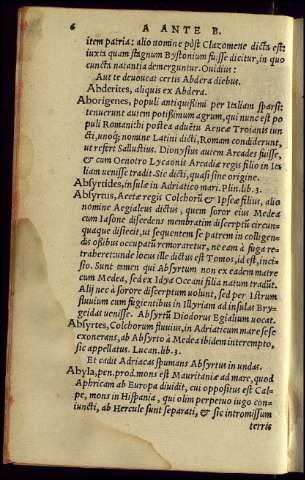 6 A ANTE B.
item patria: alio nomine pòst Clazomene dicta est:
iuxta quam stagnum Bystonium fuisse dicitur, in quo
cuncta natantia denerguntur. Ouidius:
Aut te deuoueat certis Abdera diebus.
Abderites, aliquis ex Abdera.
Aborigenes, populi antiquissimi per Italiam sparsi:
tenuerunt autem potissimum agrum, qui nunc est po
puli Romani: hi postea aduētu Aeneæ Troianis iun
cti, unoq; nomine Latini dicti, Romam condiderunt,
ut refert Sallustius. Dionysius autem Arcades fuisse,
& cum Oenotro Lycaonis Arcadiæ regis filio in Ita
liam uenisse tradit. Sic dicti, quasi sine origine.
Absyrtides, insulæ in Adriatico mari. Plin. lib. 3.
Absyrtus, Aeetæ regis Colchorū & Ipseæ filius, alio
nomine Aegialeus dictus, quem soror eius Medea
cum Iasone discedens membratim discerptū circun
quaque disiecit, ut sequentem se patrem in colligen-
dis ossibus occupatū remoraretur, ne eam à fuga re-
traheret: unde locus ille dictus est Tomos, id est, inci-
sio. Sunt tamen qui Absyrtum non ex eadem matre
cum Medea, sed ex Idya Oceani filia natum tradūt.
Alij nec à sorore discerptum uolunt, sed per Istrum
fluuium cum fugientibus in Illyriam ad insulas Bry-
geidas uenisse. Absyrtū Diodorus Egialium uocat.
Absyrtes, Colchorum fluuius, in Adriaticum mare sese
exonerans, ab Absyrto à Medea ibidem interempto,
sic appellatus. Lucan. lib. 3.
Et cadit Adriacas spumans Absyrtus in undas.
Abyla, pen. prod. mons est Mauritaniæ ad mare, quod
Aphricam ab Europa diuidit, cui oppositus est Cal-
pe, mons in Hispania, qui olim perpetuo iugo con-
iuncti, ab Hercule sunt separati, & sic intromissum
terris